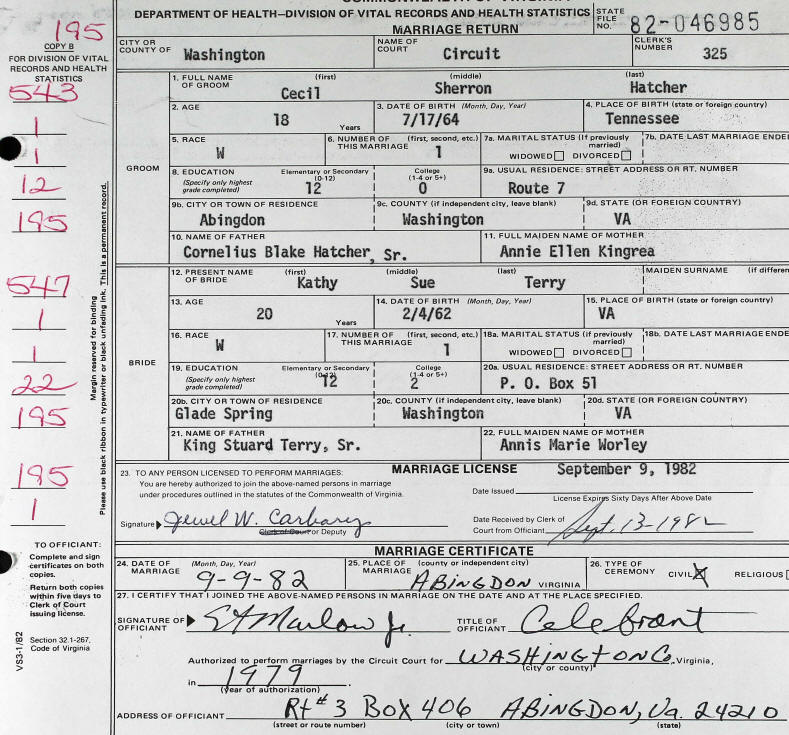 DEPARTMENT OF HEALTH—DIVISION OF VITAL RECORDS AND HEALTH STATISTICS
STATE FILE NO. 82-046985
MARRIAGE RETURN
195
COPY B
FOR DIVISION OF VITAL RECORDS AND HEALTH STATISTICS
CITY OR COUNTY OF Washington NAME OF COURT Circuit CLERK'S NUMBER 325
543
1
1
12
195
547
1
1
22
195
195
1
Margin reserved for binding
Please use black ribbon in typewriter or black unfading ink. This is a permanent record.
GROOM
1. FULL NAME OF GROOM (first) Cecil (middle) Sherron (last) Hatcher
2. AGE 18 Years 3. DATE OF BIRTH (Month, Day, Year) 7/17/64 4. PLACE OF BIRTH (state or foreign country) Tennessee
5. RACE W 6. NUMBER OF THIS MARRIAGE (first, second, etc.) 1 7a. MARITAL STATUS (If previously married) WIDOWED DIVORCED 7b. DATE LAST MARRIAGE ENDE
8. EDUCATION (Specify only highest grade completed) Elementary or Secondary (0-12) 12 College (1-4 or 5+) 0 9a. USUAL RESIDENCE: STREET ADDRESS OR RT. NUMBER Route 7
9b. CITY OR TOWN OF RESIDENCE Abingdon 9c. COUNTY (if independent city, leave blank) Washington 9d. STATE (OR FOREIGN COUNTRY) VA
10. NAME OF FATHER Cornelius Blake Hatcher, Sr. 11. FULL MAIDEN NAME OF MOTHER Annie Ellen Kingrea
BRIDE
12. PRESENT NAME OF BRIDE (first) Kathy (middle) Sue (last) Terry MAIDEN SURNAME (if differen
13. AGE 20 Years 14. DATE OF BIRTH (Month, Day, Year) 2/4/62 15. PLACE OF BIRTH (state or foreign country) VA
16. RACE W 17. NUMBER OF THIS MARRIAGE (first, second, etc.) 1 18a. MARITAL STATUS (if previously married) WIDOWED DIVORCED 18b. DATE LAST MARRIAGE ENDE
19. EDUCATION (Specify only highest grade completed) Elementary or Secondary (0-12) 12 College (1-4 or 5+) 2 20a. USUAL RESIDENCE: STREET ADDRESS OR RT. NUMBER P. O. Box 51
20b. CITY OR TOWN OF RESIDENCE Glade Spring 20c. COUNTY (if independent city, leave blank) Washington 20d. STATE (OR FOREIGN COUNTRY) VA
21. NAME OF FATHER King Stuard Terry, Sr. 22. FULL MAIDEN NAME OF MOTHER Annis Marie Worley
23. TO ANY PERSON LICENSED TO PERFORM MARRIAGES: MARRIAGE LICENSE September 9, 1982
You are hereby authorized to join the above-named persons in marriage
under procedures outlined in the statutes of the Commonwealth of Virginia.
Date Issued
License Expires Sixty Days After Above Date
Signature Jewel W. Carbary
Clerk of Court or Deputy
Date Received by Clerk of Court from Officiant Sept. 13-1982
MARRIAGE CERTIFICATE
24. DATE OF MARRIAGE (Month, Day, Year) 9-9-82 25. PLACE OF MARRIAGE (county or independent city) ABINGDON VIRGINIA 26. TYPE OF CEREMONY CIVIL X RELIGIOUS
27. I CERTIFY THAT I JOINED THE ABOVE-NAMED PERSONS IN MARRIAGE ON THE DATE AND AT THE PLACE SPECIFIED.
SIGNATURE OF OFFICIANT Marlow Jr. TITLE OF OFFICIANT Celebrant
Authorized to perform marriages by the Circuit Court for WASHINGTON Co, Virginia,
(city or county)
in 1979.
(year of authorization)
ADDRESS OF OFFICIANT Rt #3 Box 406 ABINGDON, Va. 24210
(street or route number) (city or town) (state)
TO OFFICIANT:
Complete and sign certificates on both copies.
Return both copies within five days to Clerk of Court issuing license.
Section 32.1-267, Code of Virginia
VS3-1/82